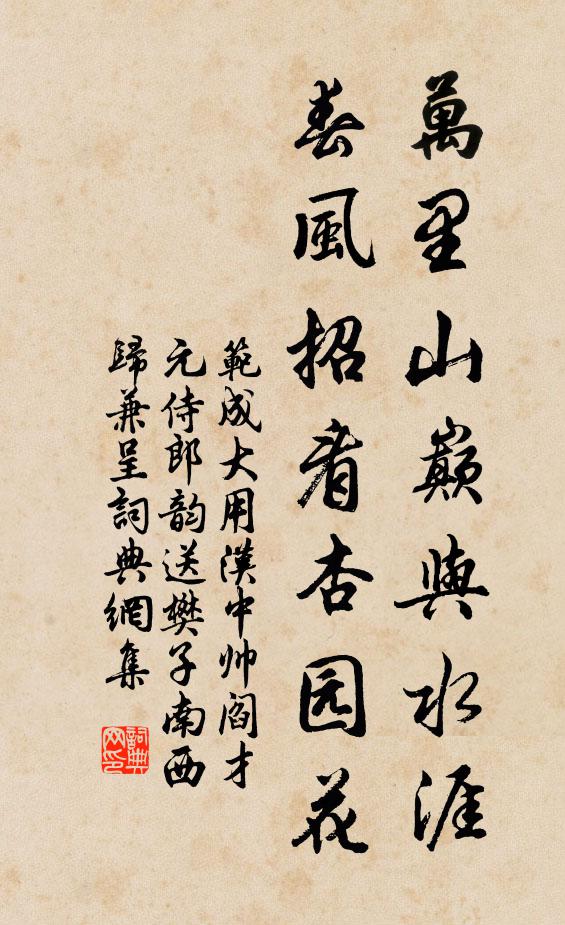 萬里山巔與水涯
春風招看杏园花
範成大用漢中帅閻才
元侍郎韵送樊子南西
歸兼呈詞典網集
詞典网印